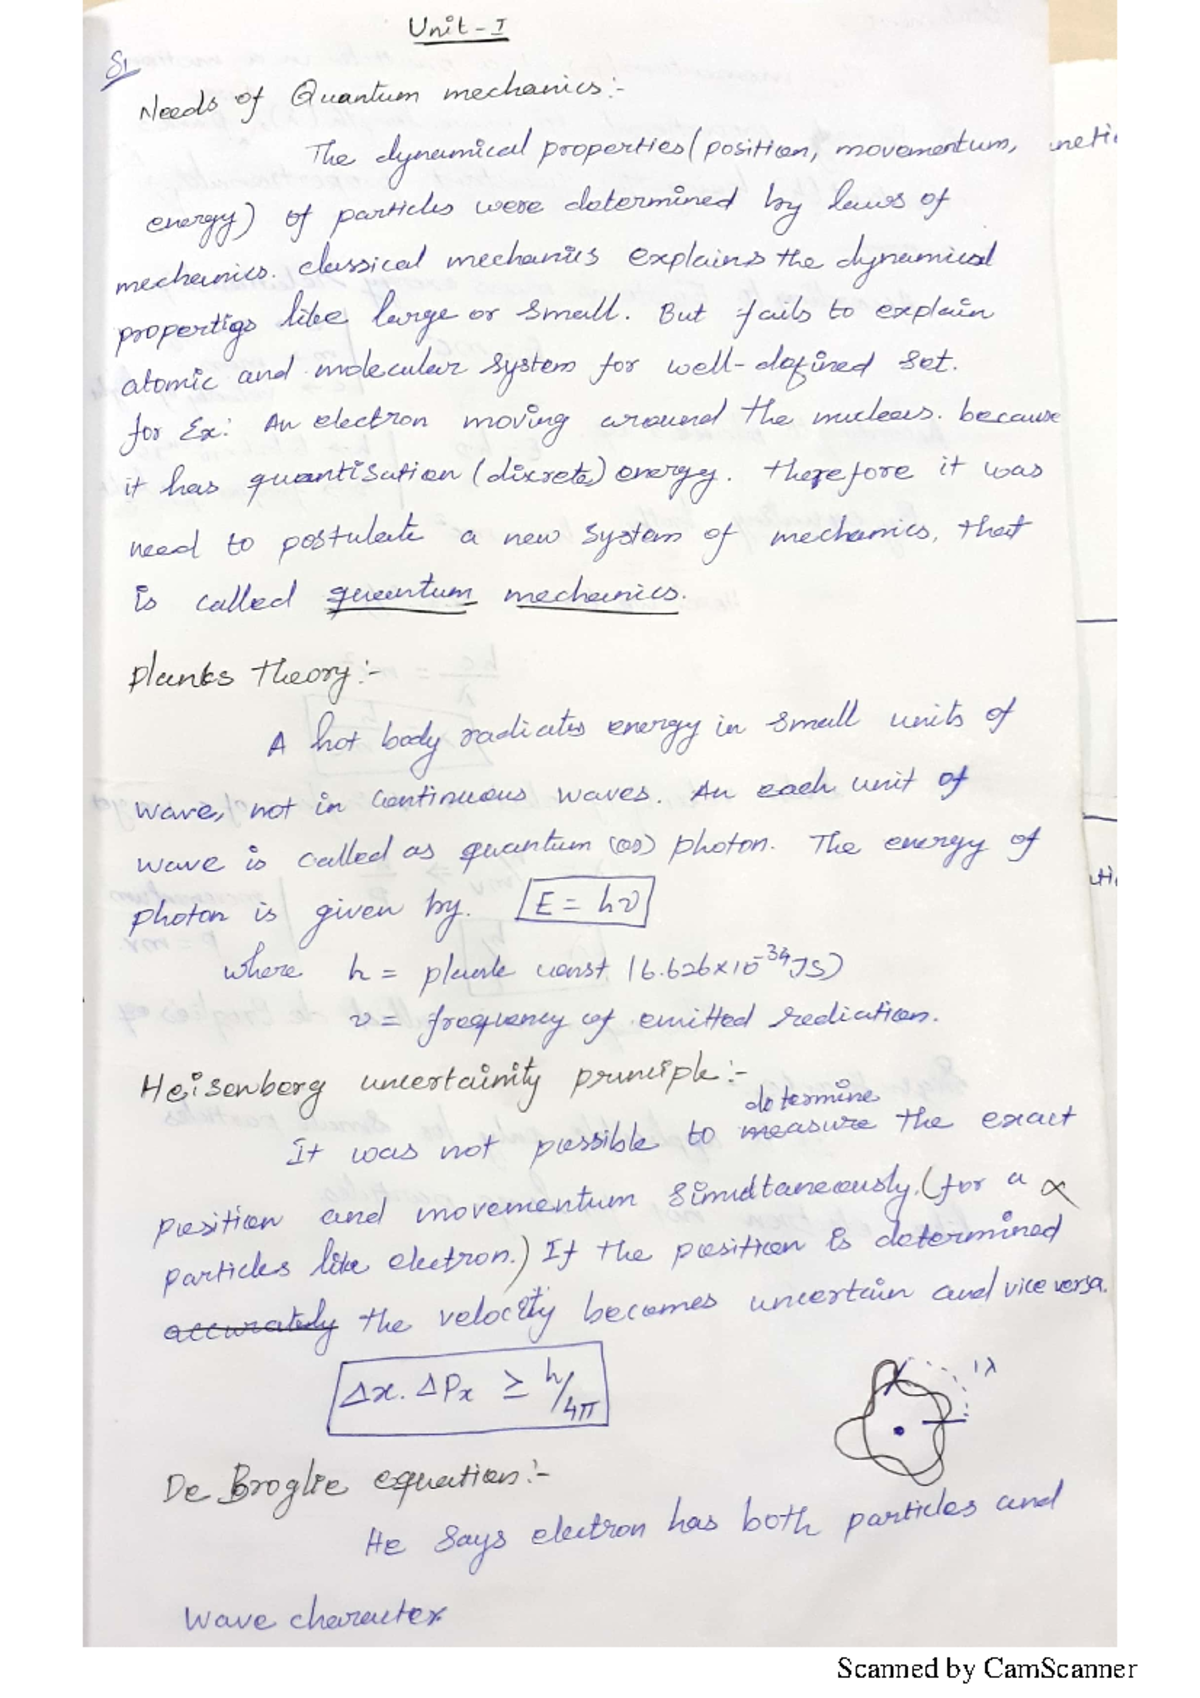 Unit-I
S1
Needs of Quantum mechanics:-
The dynamical properties (position, movementum, netic
energy) of particles were determined by laws of
mechanics. classical mechanics explains the dynamical
properties like large or small. But fails to explain
atomic and molecular system for well-defined set.
for Ex: An electron moving around the nucleus. because
it has quantisation (discrete) energy. therefore it was
need to postulate a new system of mechanics, that
is called quantum mechanics.
planks theory:-
A hot body radiates energy in small units of
wave, not in continuous waves. An each unit of
wave is called as quantum (or) photon. The energy of
photon is given by. E = hν
where h = plank const (6.626×10⁻³⁴JS)
ν = frequency of emitted rediation.
Heisenberg uncertainity principle:-
determine
It was not possible to measure the exact
position and movementum simultaneously. (for a ∝
particles like electron.) If the position is determined
accurately the velocity becomes uncertain and vice versa.
Δx. ΔPx ≥ h/4π
1λ
De Broglie equation:-
He says electron has both particles and
wave character
Scanned by CamScanner